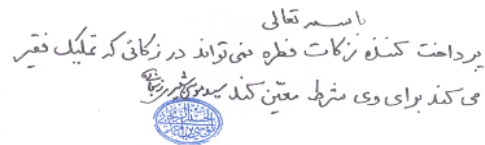 باسمه تعالی
پرداخت کننده زکات فطره نمی‌تواند در زکاتی که تملیک فقیر
می کند برای وی شرط معیّن کند سید موسی شبیری زنجانی